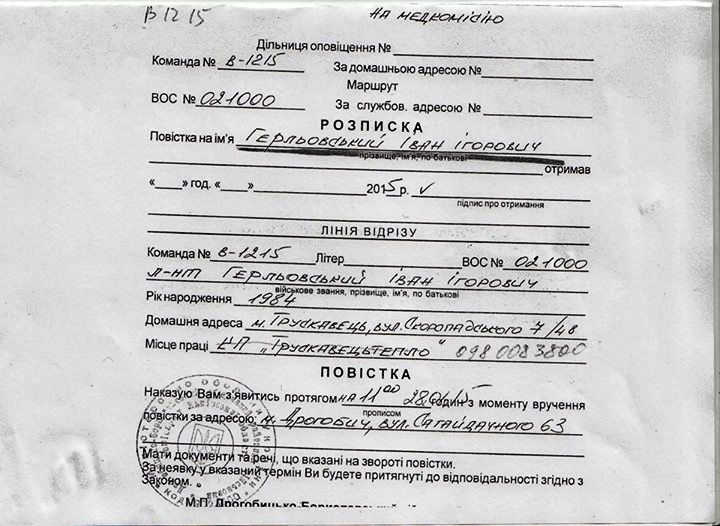 В 12 15 на медкомісію
Дільниця оповіщення №
Команда № В-1215 За домашньою адресою №
Маршрут
ВОС № 021000 За службов. адресою №
РОЗПИСКА
Повістка на ім'я Герльовський Іван Ігорович
прізвище, ім'я, по батькові
отримав
«___» год. «___» 2015 р. ✓
підпис про отримання
ЛІНІЯ ВІДРІЗУ
Команда № В-1215 Літер ВОС № 021000
л-нт Герльовський Іван Ігорович
військове звання, прізвище, ім'я, по батькові
Рік народження 1984
Домашня адреса м. Трускавець, вул. Скоропадського 7/48
Місце праці КП „Трускавецьтепло" 098 008 3800
ПОВІСТКА
Наказую Вам з'явитись протягом на 11 00 годин з моменту вручення
прописом
повістки за адресою: м. Дрогобич, вул. Сагайдачного 63
Мати документи та речі, що вказані на звороті повістки.
За неявку у вказаний термін Ви будете притягнуті до відповідальності згідно з
Законом.
М.П. Дрогобицько-Бориславський